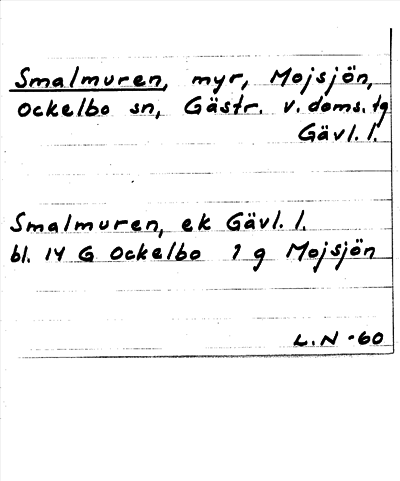 Smalmuren, myr, Mojsjön,
Ockelbo sn, Gästr. v. doms. tg
Gävl. l.
Smalmuren, ek Gävl. l.
bl. 14 G Ockelbo 1 g Mojsjön
L.N -60